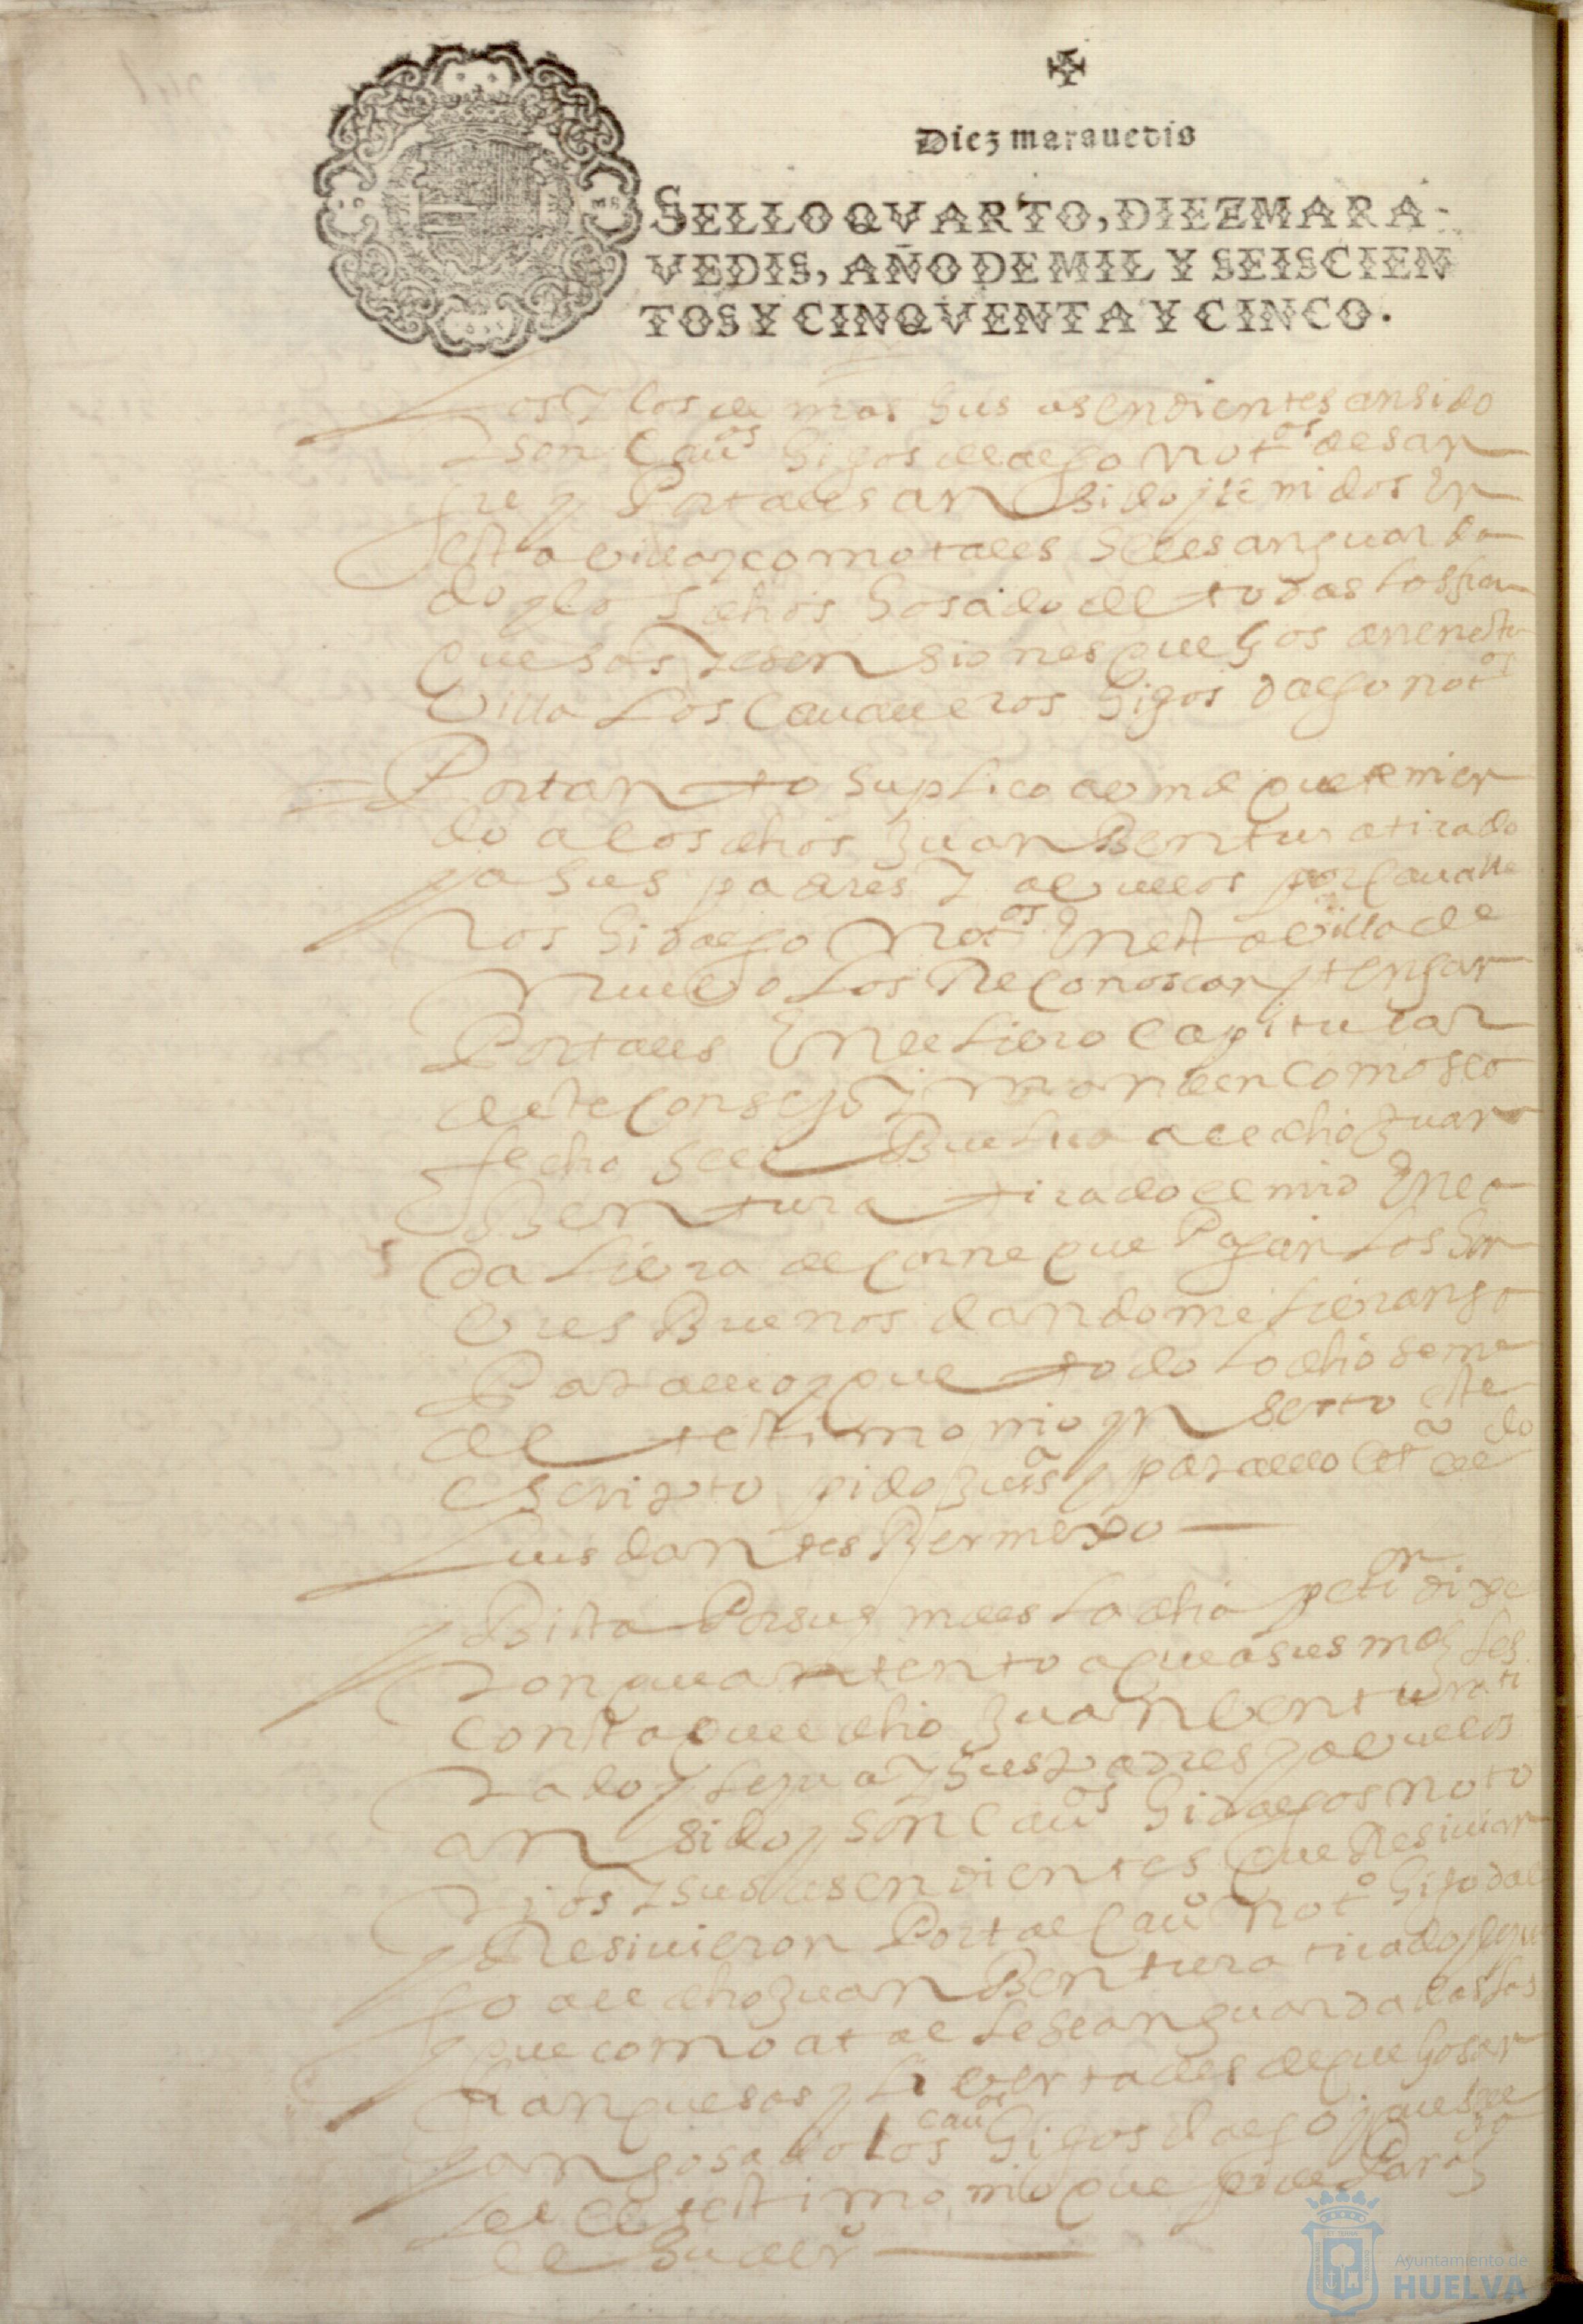 Diez marauedis
SELLO QVARTO, DIEZ MARA-
VEDIS, AÑO DE MIL Y SEISCIEN
TOS Y CINQVENTA Y CINCO.
los y los de mas sus asendientes an sido
y son cauos hijos de algo notos de san
gre y Por tales an sido y tenidos En
esta villa y como tales se les an guarda
do y los dhos gosado de todas las fran
quesas y esensiones que gos an en esta
villa los caualleros hijos dalgo notos
Por tanto suplico a vmd que teniendo
do a los dhos Juan Bentura tirado
y a sus padres y abuelos por cavalle
ros hidalgo notos En esta villa de
nuebo los Reconoscan y tengan
Por tales En el libro capitular
deste consejo y manden como sea
fecho se le Buelua al dho Juan
Bentura tirado el mrd En ca
da libra de carne que Pagan los hon
bres Buenos dandome libranza
Para ello y que todo lo dho se me
de testimonio yn serto este
escripto pido Jusa y para ello
Luis dantes Bermejo
y Bista Por sus mdes la dha petion dixe
ron que atento a que a sus mdes les
consta que el dho Juan bentura ti
rado y lepu a y sus padres y abuelos
an sido y son cauos hidalgos noto
rios y sus asendientes que Resiuian
y Resiuieron Por tal cauo noto hijo dal
go al dho Juan Bentura tirado
y que como a tal le sean guardadas las
franquesas y libertades de que gosan
y an gosado los cauos hijos dalgo y que se le
de el testimonio que pide Para
Ayuntamiento de
HUELVA